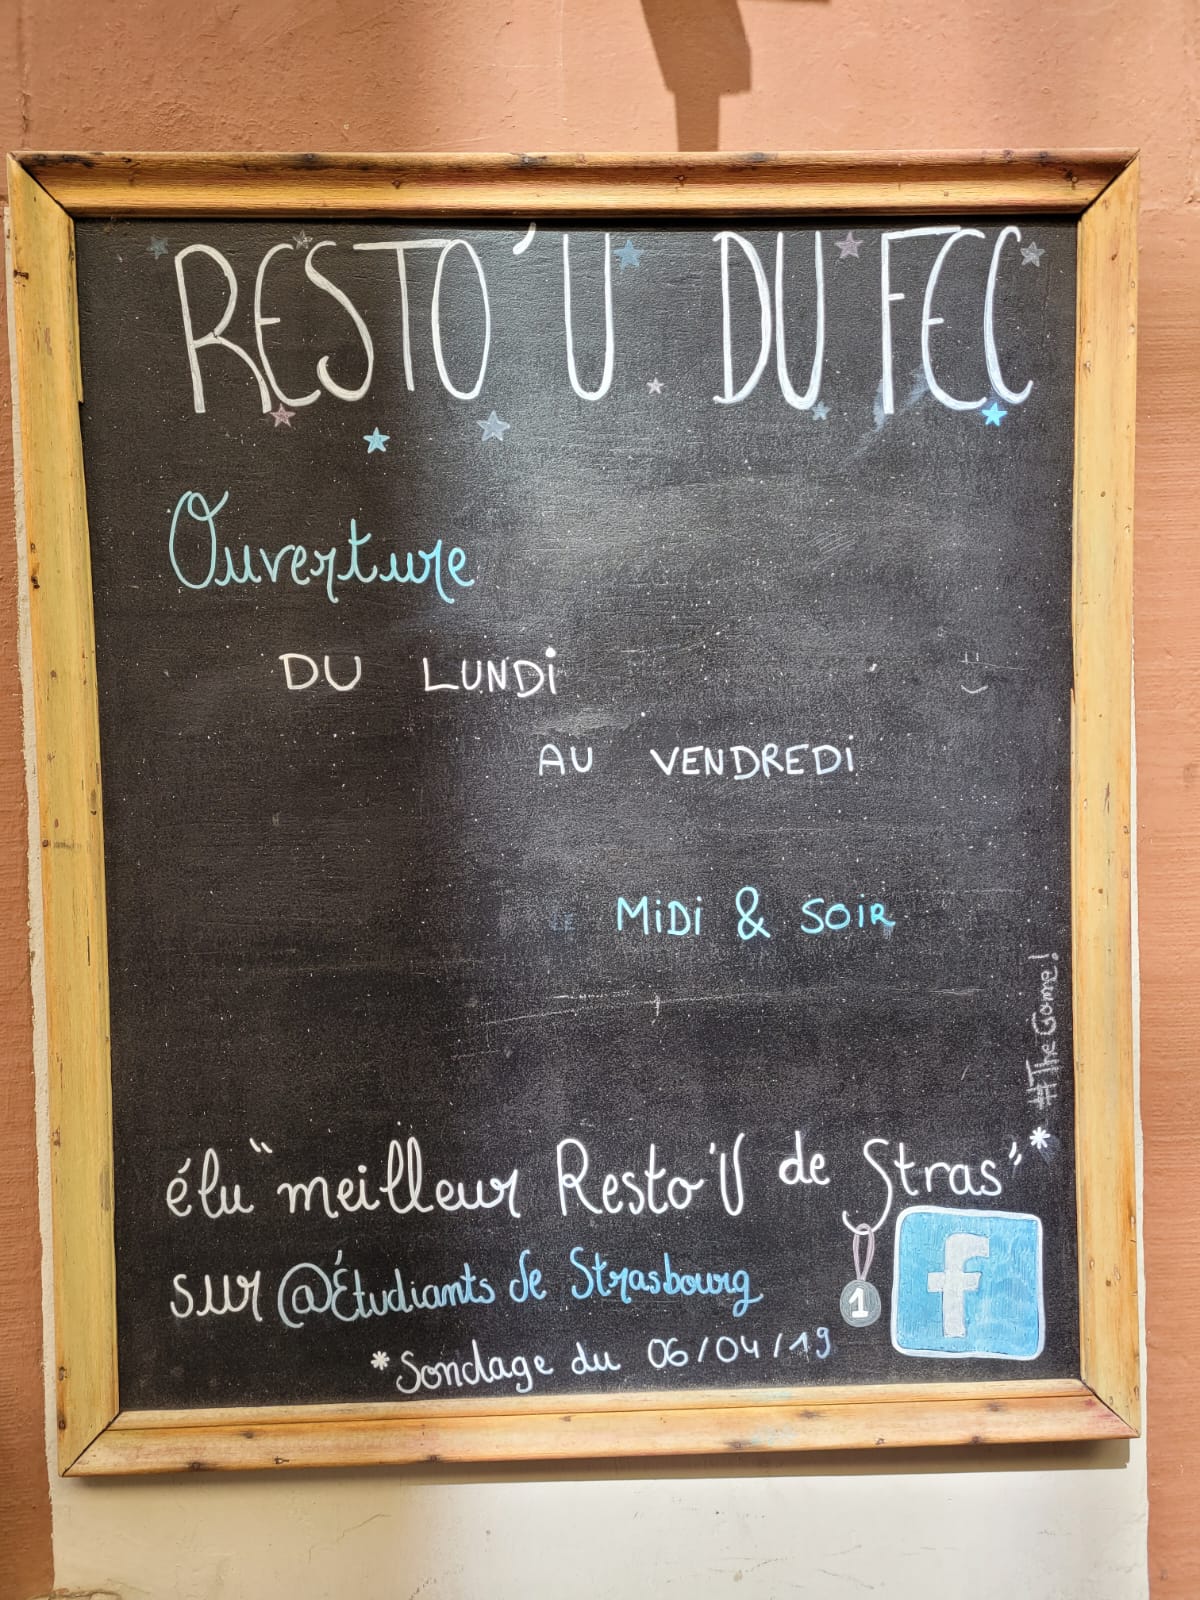 RESTO'U DU FEC
Ouverture
DU LUNDi
AU VENDREDi
MiDi & SOiR
#The Game!
élu "meilleur Resto'U de Stras"*
sur @Étudiants de Strasbourg
1
f
*Sondage du 06/04/19